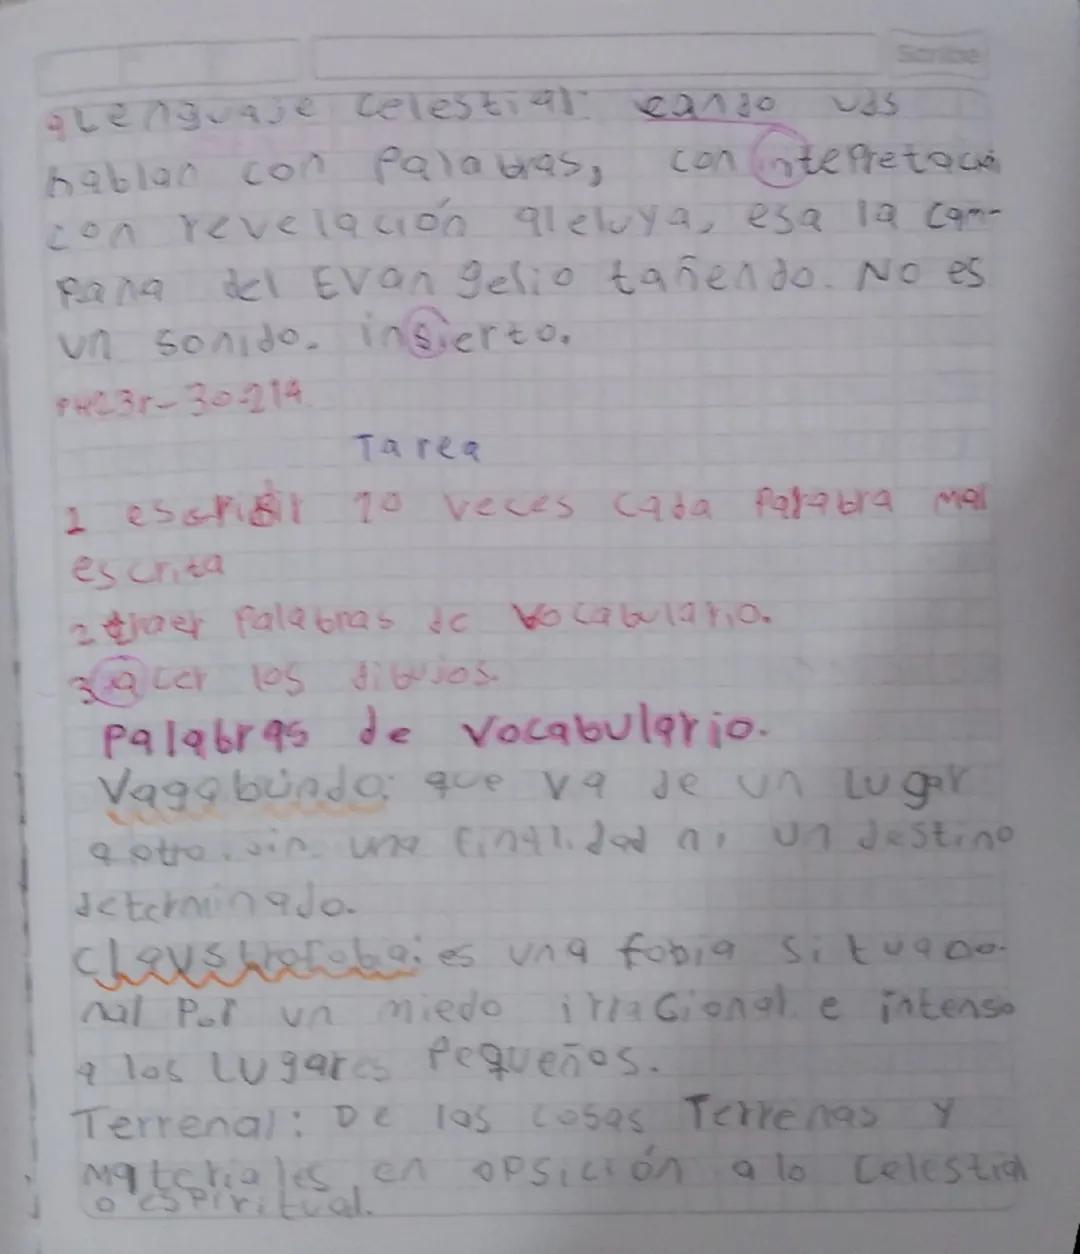 Scribe
Lenguaje celestial: cando uds
hablan con palabras, con intepretació
con revelación aleluya, esa la cam-
pana del Evangelio tañendo. No es
un sonido. insierto.
Tarea
1 escribir 10 veces cada palabra mal
escrita
2 traer palabras de vocabulario.
3 acer los dibujos.
Palabras de vocabulario.
Vagabundo: que va de un Lugar
a otro. sin una finalidad ni un destino
determinado.
claustrofobai: es una fobia situacio-
nal Por un miedo irracional e intenso
a los Lugares Pequeños.
Terrenal: De las cosas Terrenas y
Materiales en opsición a lo celestial
o espiritual.